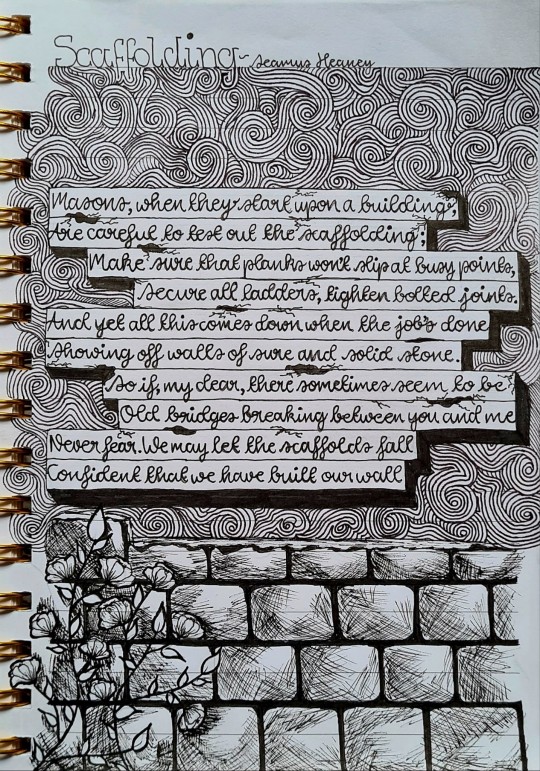 Scaffolding~ Seamus Heaney
Masons, when they start upon a building,
Are careful to test out the scaffolding;
Make sure that planks won't slip at busy points,
Secure all ladders, tighten bolted joints.
And yet all this comes down when the job's done
Showing off walls of sure and solid stone.
So if, my dear, there sometimes seem to be
Old bridges breaking between you and me
Never fear. We may let the scaffolds fall
Confident that we have built our wall